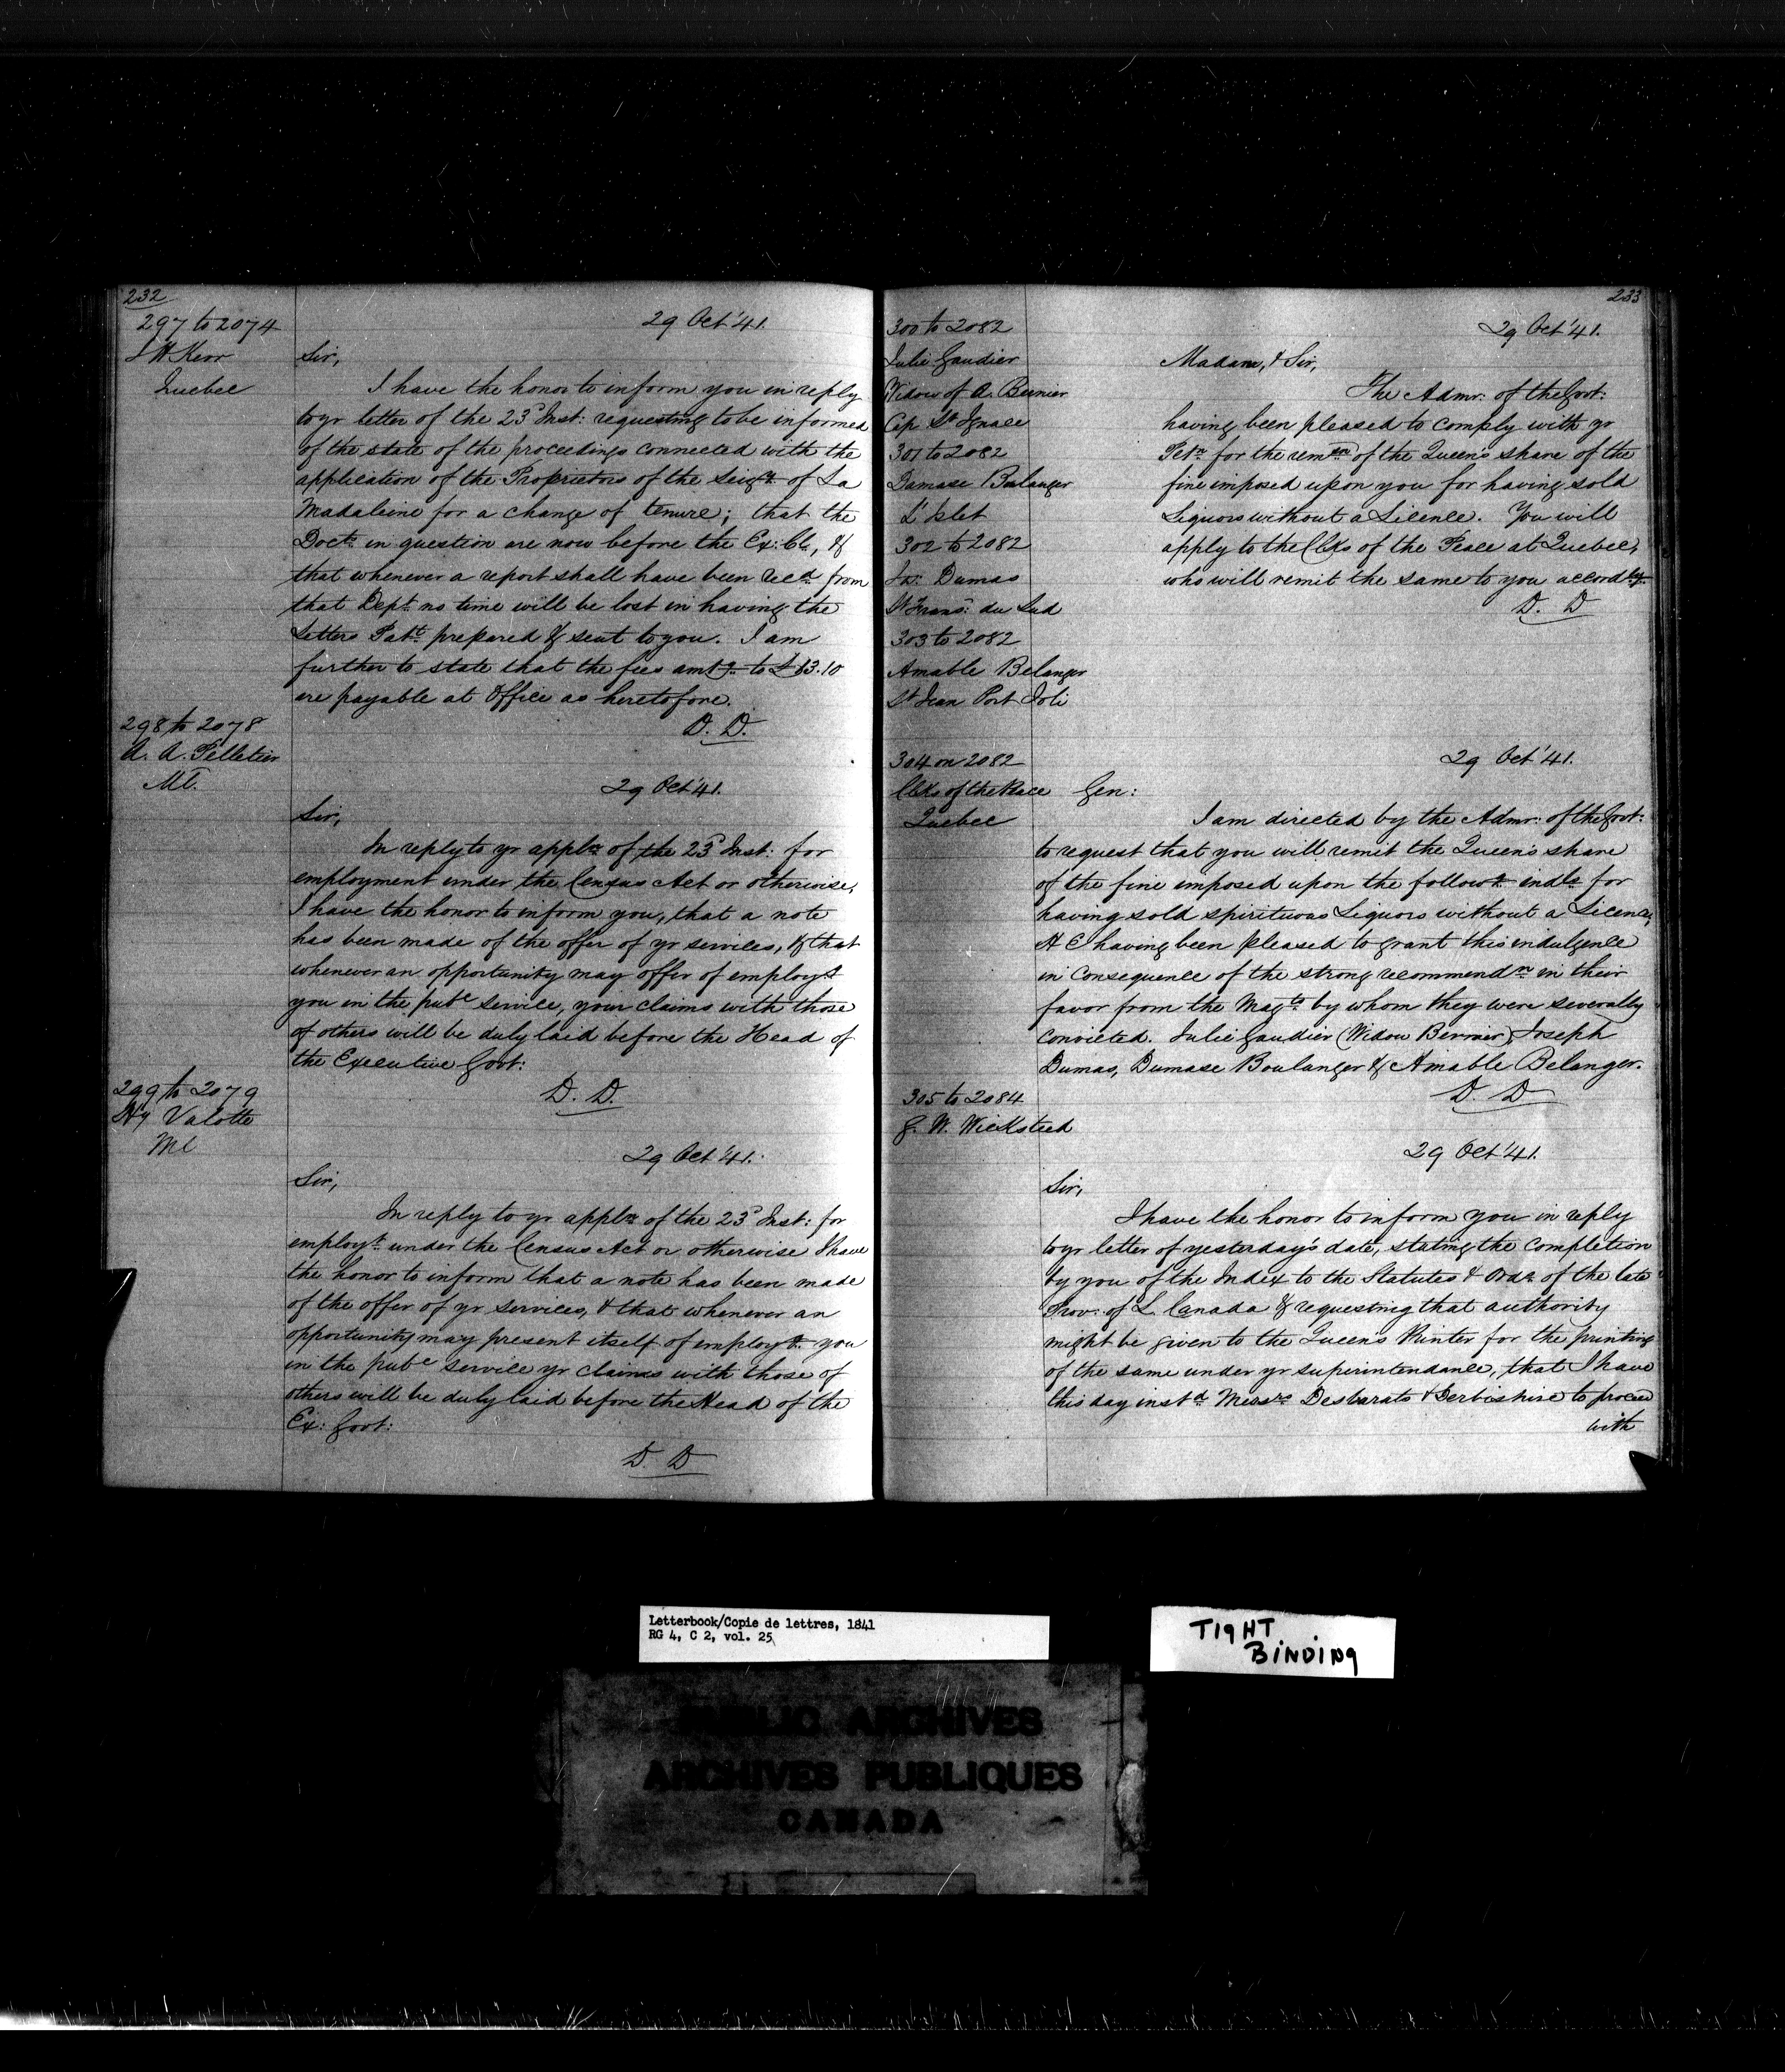 232
297 to 2074
J H Kerr
Quebec
29 Oct '41.
Sir,
I have the honor to inform you in reply
to yr letter of the 23d Inst: requesting to be informed
of the state of the proceedings connected with the
application of the Proprietors of the Seigy of La
Madaleine for a change of tenure; that the
Docts in question are now before the Ex: Cl, &
that whenever a report shall have been recd from
that Dept no time will be lost in having the
Letters Patt prepared & sent to you. I am
further to state that the fees amtg to £13.10
are payable at Office as heretofore.
D. D.
298 to 2078
A. A. Pelletier
Ml.
29 Oct '41.
Sir,
In reply to yr appln of the 23d Inst: for
employment under the Census Act or otherwise,
I have the honor to inform you, that a note
has been made of the offer of yr services, & that
whenever an opportunity may offer of employg
you in the pubc service, your claims with those
of others will be duly laid before the Head of
the Executive Govt:
D. D.
299 to 2079
Hy Valotte
Ml
29 Oct '41.
Sir,
In reply to yr appln of the 23d Inst: for
employt under the Census Act or otherwise I have
the honor to inform that a note has been made
of the offer of yr services, & that whenever an
opportunity may present itself of employg you
in the pubc service yr claims with those of
others will be duly laid before the Head of the
Ex: Govt:
D. D
233
300 to 2082
Julie Gaudier
Widow of A. Bernier
Cap St Ignace
301 to 2082
Damase Boulanger
L'Islet
302 to 2082
Jos: Dumas
St Frans: du Sud
303 to 2082
Amable Belanger
St Jean Port Joli
29 Oct '41.
Madam, & Sir,
The Admr: of the Govt:
having been pleased to comply with yr
Petn for the remson of the Queen's share of the
fine imposed upon you for having sold
Liquors without a Licence. You will
apply to the Clks of the Peace at Quebec,
who will remit the same to you accordly.
D. D
304 on 2082
Clks of the Peace
Quebec
29 Oct '41.
Gen:
I am directed by the Admr: of the Govt:
to request that you will remit the Queen's share
of the fine imposed upon the followg indls for
having sold spirituous Liquors without a Licence,
H E having been pleased to grant this indulgence
in consequence of the strong recommendn in their
favor from the Magts by whom they were severally
convicted. Julie Gaudier (Widow Bernier) Joseph
Dumas, Dumase Boulanger & Amable Belanger.
D. D
305 to 2084
G. W. Wicksteed
29 Oct '41.
Sir,
I have the honor to inform you in reply
to yr letter of yesterday's date, stating the completion
by you of the Index to the Statutes & Ords of the late
Prov: of L. Canada & requesting that authority
might be given to the Queen's Printer for the printing
of the same under yr superintendance, that I have
this day instd Messrs Desbarats & Derbishire to proceed
with
Letterbook/Copie de lettres, 1841
RG 4, C 2, vol. 25
TIGHT
BINDING
PUBLIC ARCHIVES
ARCHIVES PUBLIQUES
CANADA